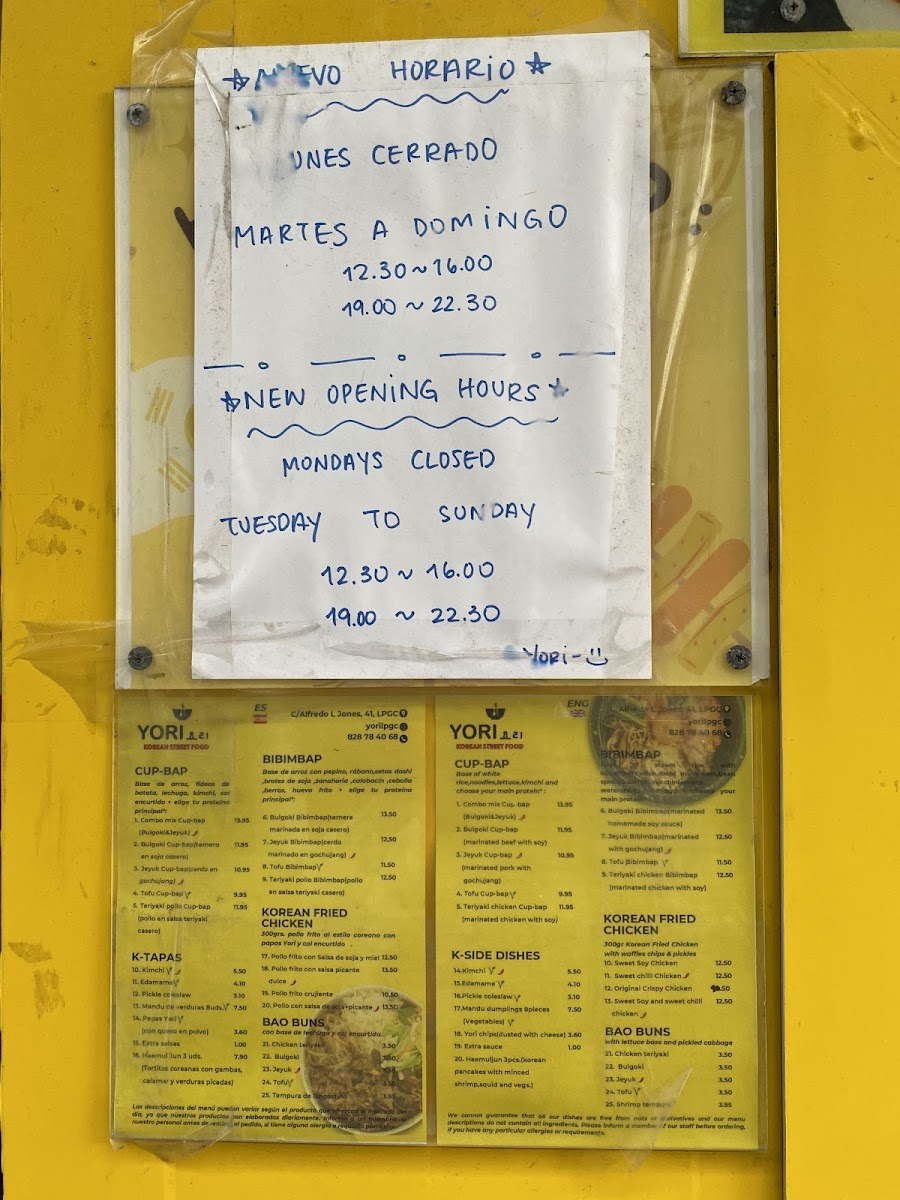 NUEVO HORARIO
LUNES CERRADO
MARTES A DOMINGO
12.30~16.00
19.00 ~ 22.30
NEW OPENING HOURS
MONDAYS CLOSED
TUESDAY TO SUNDAY
12.30 ~ 16.00
19.00 ~ 22.30
YORI-
ES
C/Alfredo L Jones, 41, LPGC
yorilpgc
828 78 40 68
YORI 요리
KOREAN STREET FOOD
CUP-BAP
Base de arroz, fideos de
batata, lechuga, kimchi, col
encurtido + elige tu proteína
principal*:
1. Combo mix Cup-bap 13.95
(Bulgoki&Jeyuk)
2. Bulgoki Cup-bap(ternera 11.95
en soja casero)
3. Jeyuk Cup-bap(cerdo en 10.95
gochujang)
4. Tofu Cup-bap 9.95
5. Teriyaki pollo Cup-bap 11.95
(pollo en salsa teriyaki
casero)
K-TAPAS
10. Kimchi 5.50
11. Edamame 4.10
12. Pickle coleslaw 3.10
13. Mandu de verduras 8uds. 7.50
14. Papas Yori
(con queso en polvo) 3.60
15. Extra salsas 1.00
16. Haemul Jun 3 uds. 7.90
(Tortitas coreanas con gambas,
calamar y verduras picadas)
BIBIMBAP
Base de arroz con pepino, rábano,setas dashi
,brotes de soja ,zanahoria ,calabacin ,cebolla
,berros, huevo frito + elige tu proteína
principal*:
6. Bulgoki Bibimbap(ternera 13.50
marinada en soja casero)
7. Jeyuk Bibimbap(cerdo 12.50
marinado en gochujang)
8. Tofu Bibimbap 11.50
9. Teriyaki pollo Bibimbap(pollo 12.50
en salsa teriyaki casero)
KOREAN FRIED
CHICKEN
300grs. pollo frito al estilo coreano con
papas Yori y col encurtido .
17. Pollo frito con Salsa de soja y miel 12.50
18. Pollo frito con salsa picante 13.50
dulce
19. Pollo frito crujiente 10.50
20. Pollo con salsa de soja+picante 13.50
BAO BUNS
con base de lechuga y col encurtida
21. Chicken teriyaki 3.50
22. Bulgoki 3.50
23. Jeyuk
24. Tofu
25. Tempura de langostino 3.95
Las descripciones del menú pueden varias según el producto que ofrezca el mercado del
día, ya que nuestros productos son elaborados diariamente. Informe a un miembro de
nuestro personal antes de realizar el pedido, si tiene alguna alergia o requisito particular.
ENG
C/Alfredo L Jones, 41, LPGC
yorilpgc
828 78 40 68
YORI 요리
KOREAN STREET FOOD
CUP-BAP
Base of white
rice,noodles,lettuce,kimchi and
choose your main protein* :
1. Combo mix Cup-bap 13.95
(Bulgoki&Jeyuk)
2. Bulgoki Cup-bap 11.95
(marinated beef with soy)
3. Jeyuk Cup-bap 10.95
(marinated pork with
gochujang)
4. Tofu Cup-bap 9.95
5. Teriyaki chicken Cup-bap 11.95
(marinated chicken with soy)
K-SIDE DISHES
14.Kimchi 5.50
15.Edamame 4.10
16.Pickle coleslaw 3.10
17.Mandu dumplings 8pieces 7.50
(Vegetables)
18. Yori chips(dusted with cheese) 3.60
19. Extra sauce 1.00
20. Haemuljun 3pcs.(korean
pancakes with minced
shrimp,squid and vegs.)
BIBIMBAP
rice with
choose your
main protein*:
6. Bulgoki Bibimbap(marinated 13.50
homemade soy sauce)
7. Jeyuk Bibimbap(marinated 12.50
with gochujang)
8. Tofu Bibimbap 11.50
9. Teriyaki chicken Bibimbap 12.50
(marinated chicken with soy)
KOREAN FRIED
CHICKEN
300gr Korean Fried Chicken
with waffles chips & pickles
10. Sweet Soy Chicken 12.50
11. Sweet chilli Chicken 12.50
12. Original Crispy Chicken .50
13. Sweet Soy and sweet chilli 12,50
chicken
BAO BUNS
with lettuce base and pickled cabbage
21. Chicken teriyaki 3.50
22. Bulgoki 3.50
23. Jeyuk 3.50
24. Tofu 3.50
25. Shrimp tempura 3.95
We cannot guarantee that all our dishes are free from nuts or derivatives and our menu
descriptions do not contain all ingredients. Please inform a member of our staff before ordering,
if you have any particular allergies or requirements.